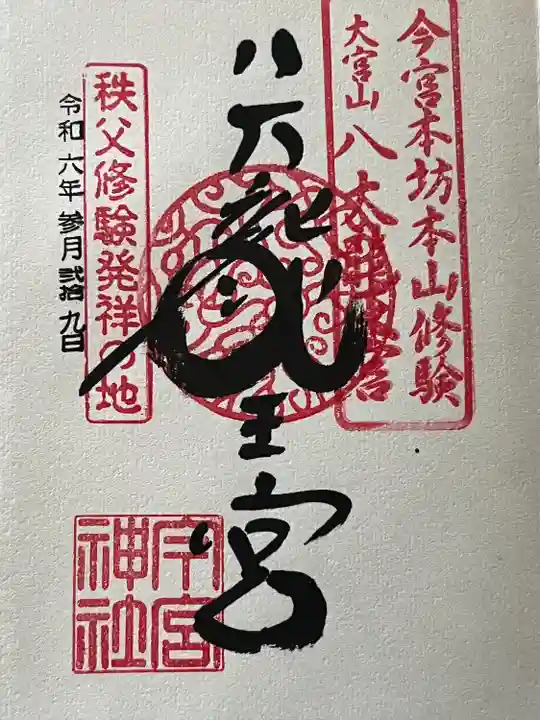 今宮本坊本山修験
大宮山 八大龍王宮
八大龍王宮
秩父修験発祥の地
令和六年参月弐拾九日
今宮
神社